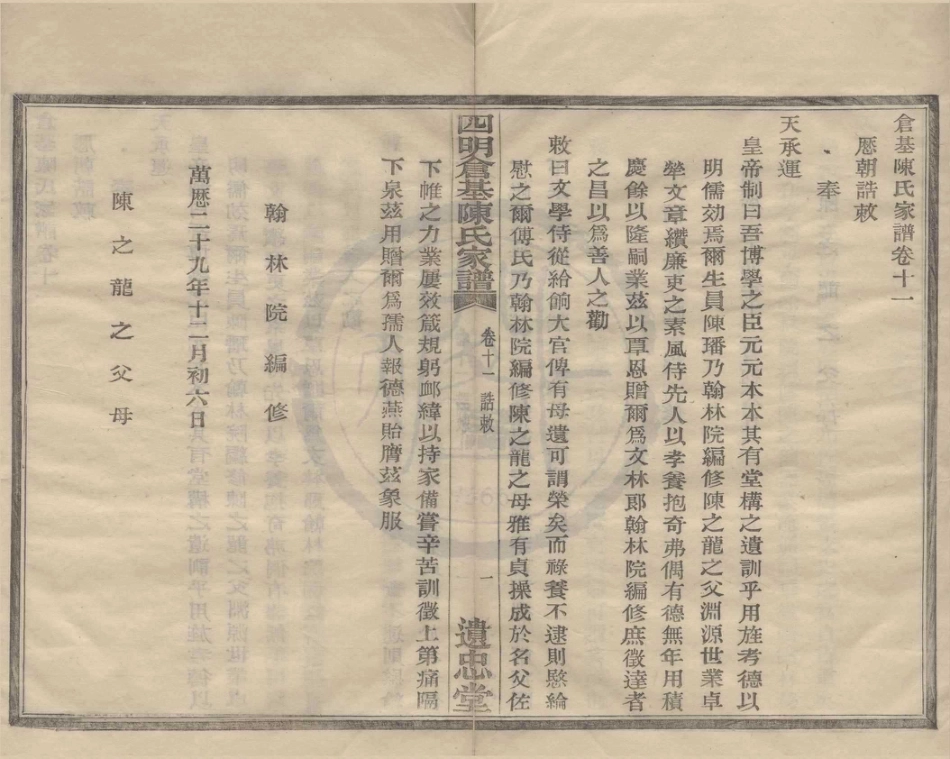 倉基陳氏家譜卷十一
歷朝誥敕
奉
天承運
皇帝制曰吾博學之臣元元本本其有堂構之遺訓乎用旌考德以
明儒効焉爾生員陳璠乃翰林院編修陳之龍之父淵源世業卓
犖文章纘廉吏之素風侍先人以孝養抱奇弗偶有德無年用積
慶餘以隆嗣業茲以覃恩贈爾爲文林郎翰林院編修庶徵達者
之昌以爲善人之勸
敕曰文學侍從給餉大官傳有母遺可謂榮矣而祿養不逮則愍綸
慰之爾傅氏乃翰林院編修陳之龍之母雅有貞操成於名父佐
下帷之力業屢效箴規躬衈緯以持家備嘗辛苦訓徵上第痛隔
下泉茲用贈爾爲孺人報德燕貽膺茲象服
翰林院編修
萬歷二十九年十二月初六日
陳之龍之父母
四明倉基陳氏家譜
卷十一
誥敕
一
遺忠堂